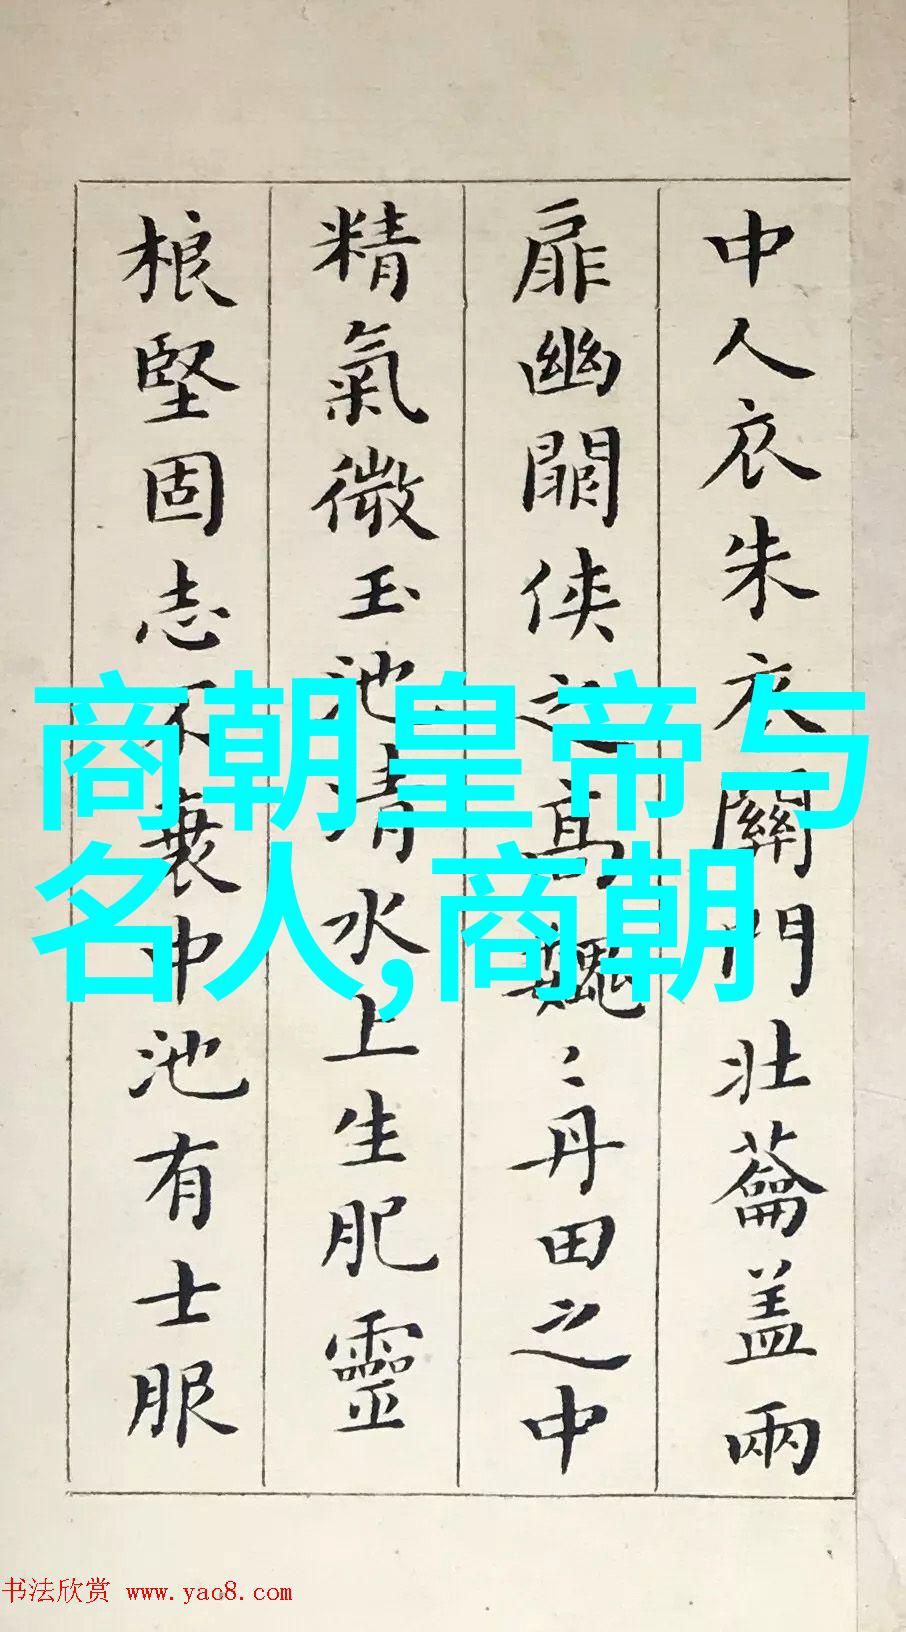 中人衣朱衣關門壯蘥盖兩
扉幽闗侠之高巍〻丹田之中
精氣微玉池清水上生肥靈
根堅固志不衰中池有士服
商朝皇帝与
名人,商朝
书法欣赏 www.yac8.com